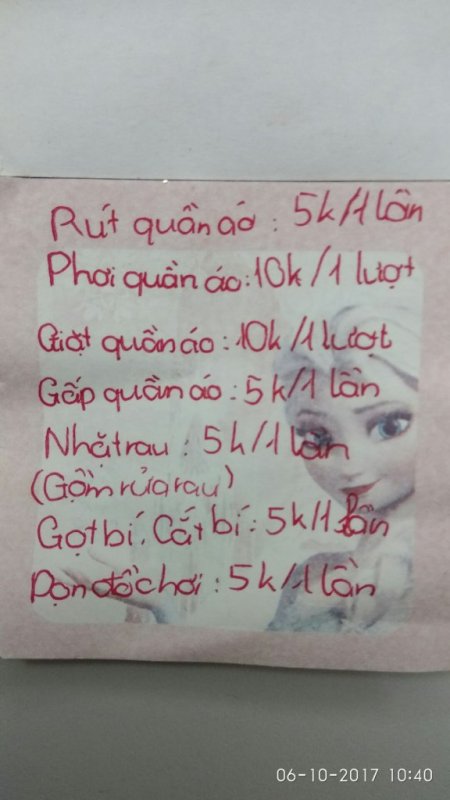 Rút quần áo : 5k/1 lần
Phơi quần áo : 10k/1 lượt
Giặt quần áo : 10k/1 lượt
Gấp quần áo : 5k/1 lần
Nhặt rau : 5k/1 lần
(Gồm rửa rau)
Gọt bí, Cắt bí : 5k/1 lần
Dọn đồ chơi : 5k/1 lần
06-10-2017 10:40